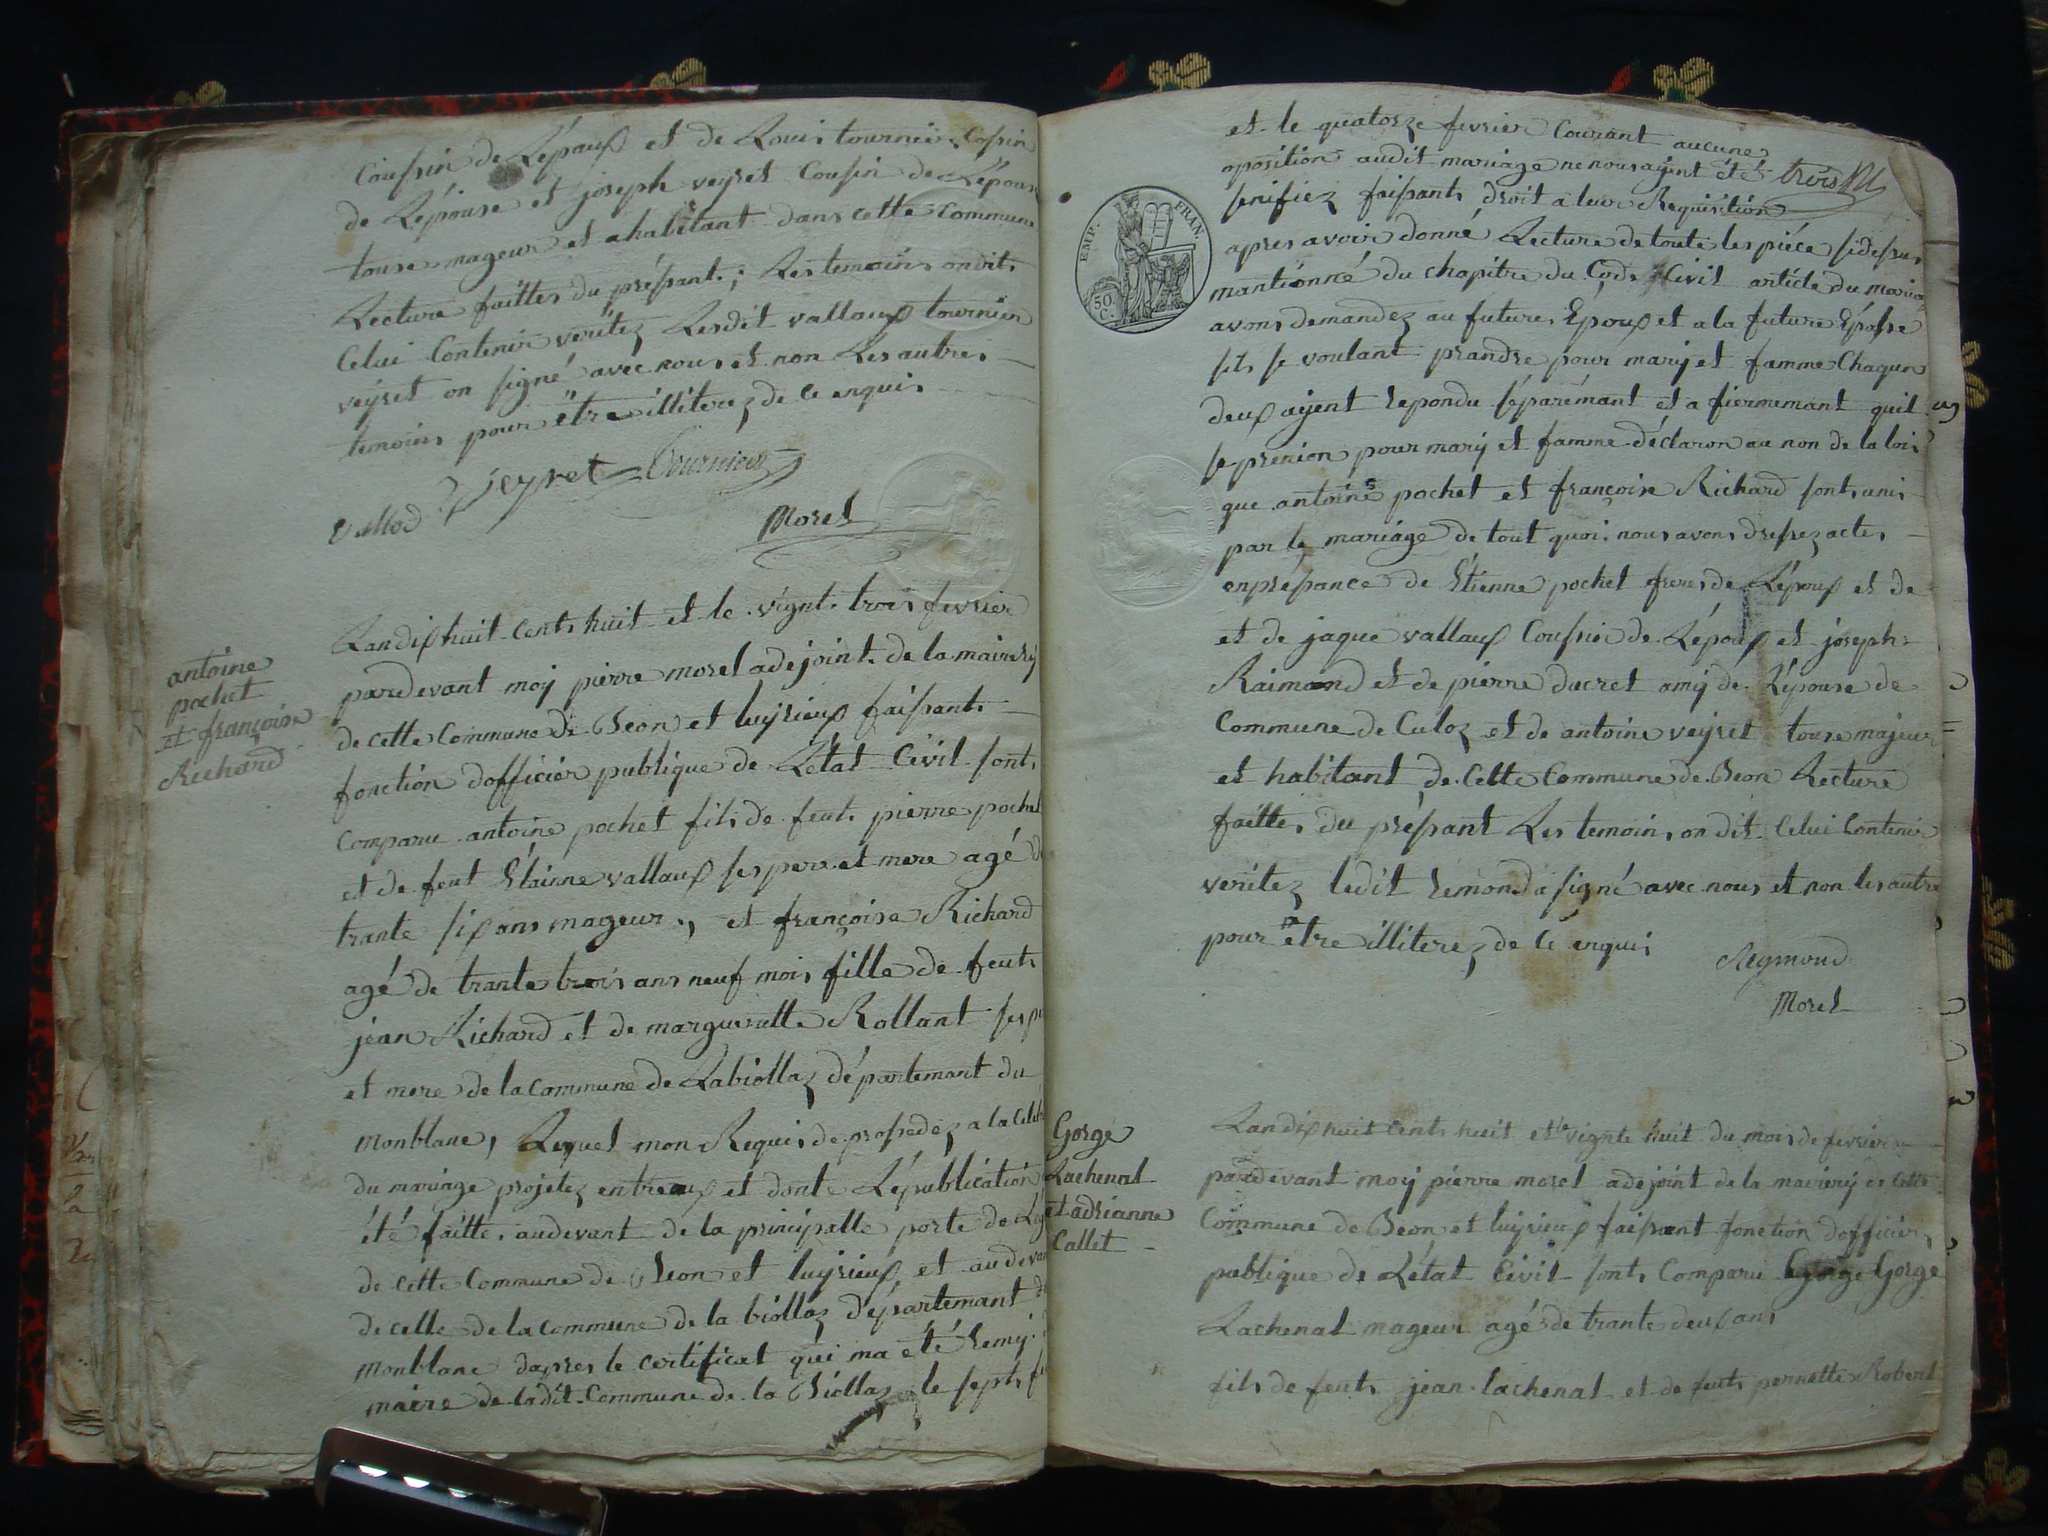 Coussin de Lépoux et de Louis tournier Cossin
de Lépouse et joseph veyret Cousin de Lépouse
touse mageur et ahabitant dans cette Commune
Lecture faittes du présant ; Les temoins ondit
Celui Contenir veritez Lesdit vallaux tournier
veyret on signé avec nous et non Les autres
temoins pour être illiterez de ce enquis
Vallod Veyret Tournier
Morel
antoine
pochet
et françoise
Richard
Landixhuit cents huit et le vignt trois fevrier
pardevant moy pierre morel adejoint de la mairery
de cette Commune de Beon et luyrieux faisant
fonction dofficier publique de Létat Civil sont
Comparu antoine pochet fils de feut pierre pochet
et de feut Etainne vallaux ses pere et mere agé de
trante six ans mageur, et françoise Richard
agé de trante trois ans neuf mois fille de feut
jean Richard et de margueritte Rollant ses pe
et mere de la commune de Labiollaz département du
monblanc, Lequel mon Requis de prosedez a la Celeb
du mariage projetez entreaux et donte Lépublication
été faitte audevant de la principalle porte de Leg
de cette Commune de Beon et luyrieux et audevan
de celle de la commune de la biollaz département du
monblanc dapres le certificat qui ma été Remy
maire de ladit Commune de la Biollaz le sept fe
et le quatorze fevrier Courant aucune
oposition audit mariage ne nous ayent étés trois
senifiez faisant droit a leur Requisition
apres avoir donné Lecture de toute les piéce sidesus
mantionné du chapitre du Code Civil article du maria
EMP. FRAN.
50 C.
avons demandez au future Epoux et a la future Eposse
sils se voulant prandre pour mary et famme Chaqun
deux ayent Repondu séparémant et afiermemant quil
se prenion pour mary et famme déclaron au non de la loi
que antoine pochet et françoise Richard sont unis
par le mariage de tout quoi nous avons dressez actes
enpresance de Etienne pochet freres de Lépoux et de
et de jaque vallaux Coussin de Lépoux et joseph
Raimond et de pierre ducret amy de Lépouse de
Commune de Culoz et de antoine veyret touse majeur
et habitant de Cette Commune de Beon Lecture
faittes du présant Les temoins on dit Celui Contenir
veritez ledit Remond a signé avec nous et non les autre
pour être illiterez de Ce enquis
Reymond
Morel
Gorge
Lachenal
et adrianne
Callet
Landixhuit cents huit et le vignte huit du mois de fevrier
pardevant moy pierre morel adejoint de la mairery de Cette
Commune de Beon et luyrieux faisant fonction dofficier
publique de Létat Civil sont Comparu Gorge
Lachenal mageur agé de trante deux ans
fils de feut jean lachenal et de feut pernette Robert